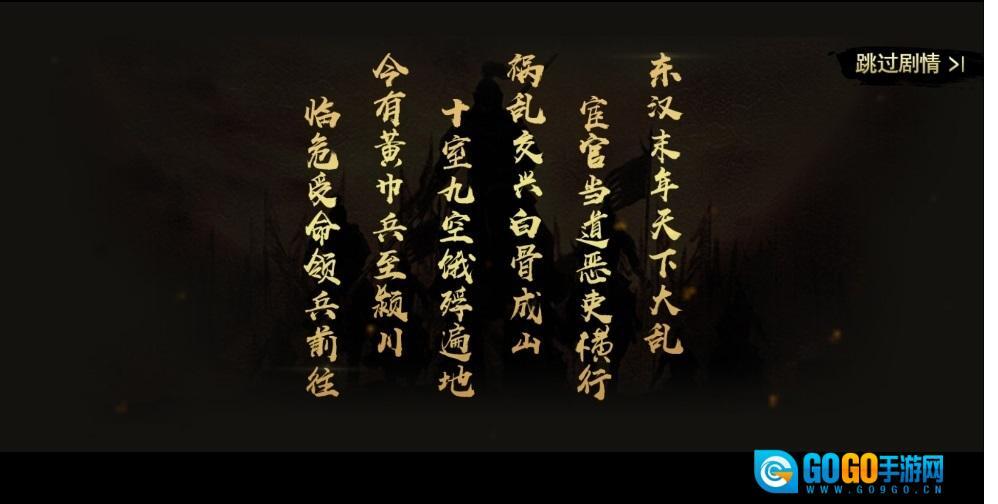 东汉末年天下大乱
宦官当道恶吏横行
祸乱交兴白骨成山
十室九空饿殍遍地
今有黄巾兵至颍川
临危受命领兵前往
跳过剧情 >|
GOGO手游网
WWW.GO9GO.CN